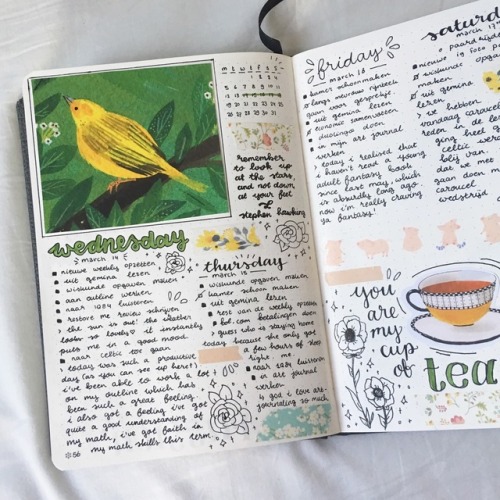 m t w t f s s
remember
to look up
at the stars
and not down
at your feet
stephen hawking
wednesday
march 14
nieuwe weekly opzetten
uit gemina lezen
wiskunde opgaven maken
aan outline werken
naar 1984 luisteren
restore me review schrijven
> the sun is out! the weather
looks so lovely & it instantly
puts me in a good mood.
naar celtic toe gaan
> today was such a productive
day (as you can see up here!)
i've been able to work a lot
on my outline which has
been such a great feeling.
i also got a feeling i've got
quite a good understanding of
my math, i've got faith in
my math skills this term.
56
thursday
march 15
wiskunde opgaven maken
kamer schoon maken
uit gemina lezen
rest van de weekly opzetten
kot con betalingen doen
> guess who is staying home
today because she only got
a few hours of sleep
right. me.
naar 1984 luisteren
in art journal
werken
> god i love art-
journaling so much
friday
march 16
kamer schoonmaken
gaan voor gesprekje.
uit gemina lezen
economie samenvatten
duolingo doen
in mijn art journal
werken
> today i realised that
i haven't read a young
adult fantasy book
since last may, which
is absurdly long ago.
now i'm really craving
ya fantasy!
you
are
my
cup
of
tea
saturd
march 17
paardrijden
nieuwe
wiskunde opgaven
maken
uit gemina
lezen
> we hebben
vandaag caravel
reden in de les
ging heel
celtic werd
blij van.
dat we met
gaan doen
carousel
wedstrijd